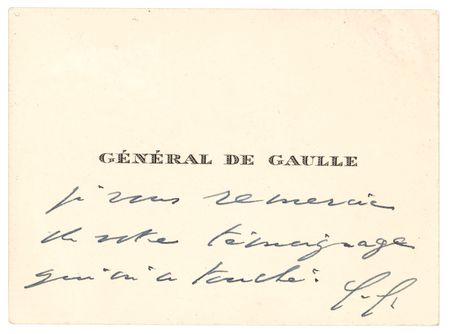 GÉNÉRAL DE GAULLE
je vous remercie
de votre témoignage
qui m'a touché.